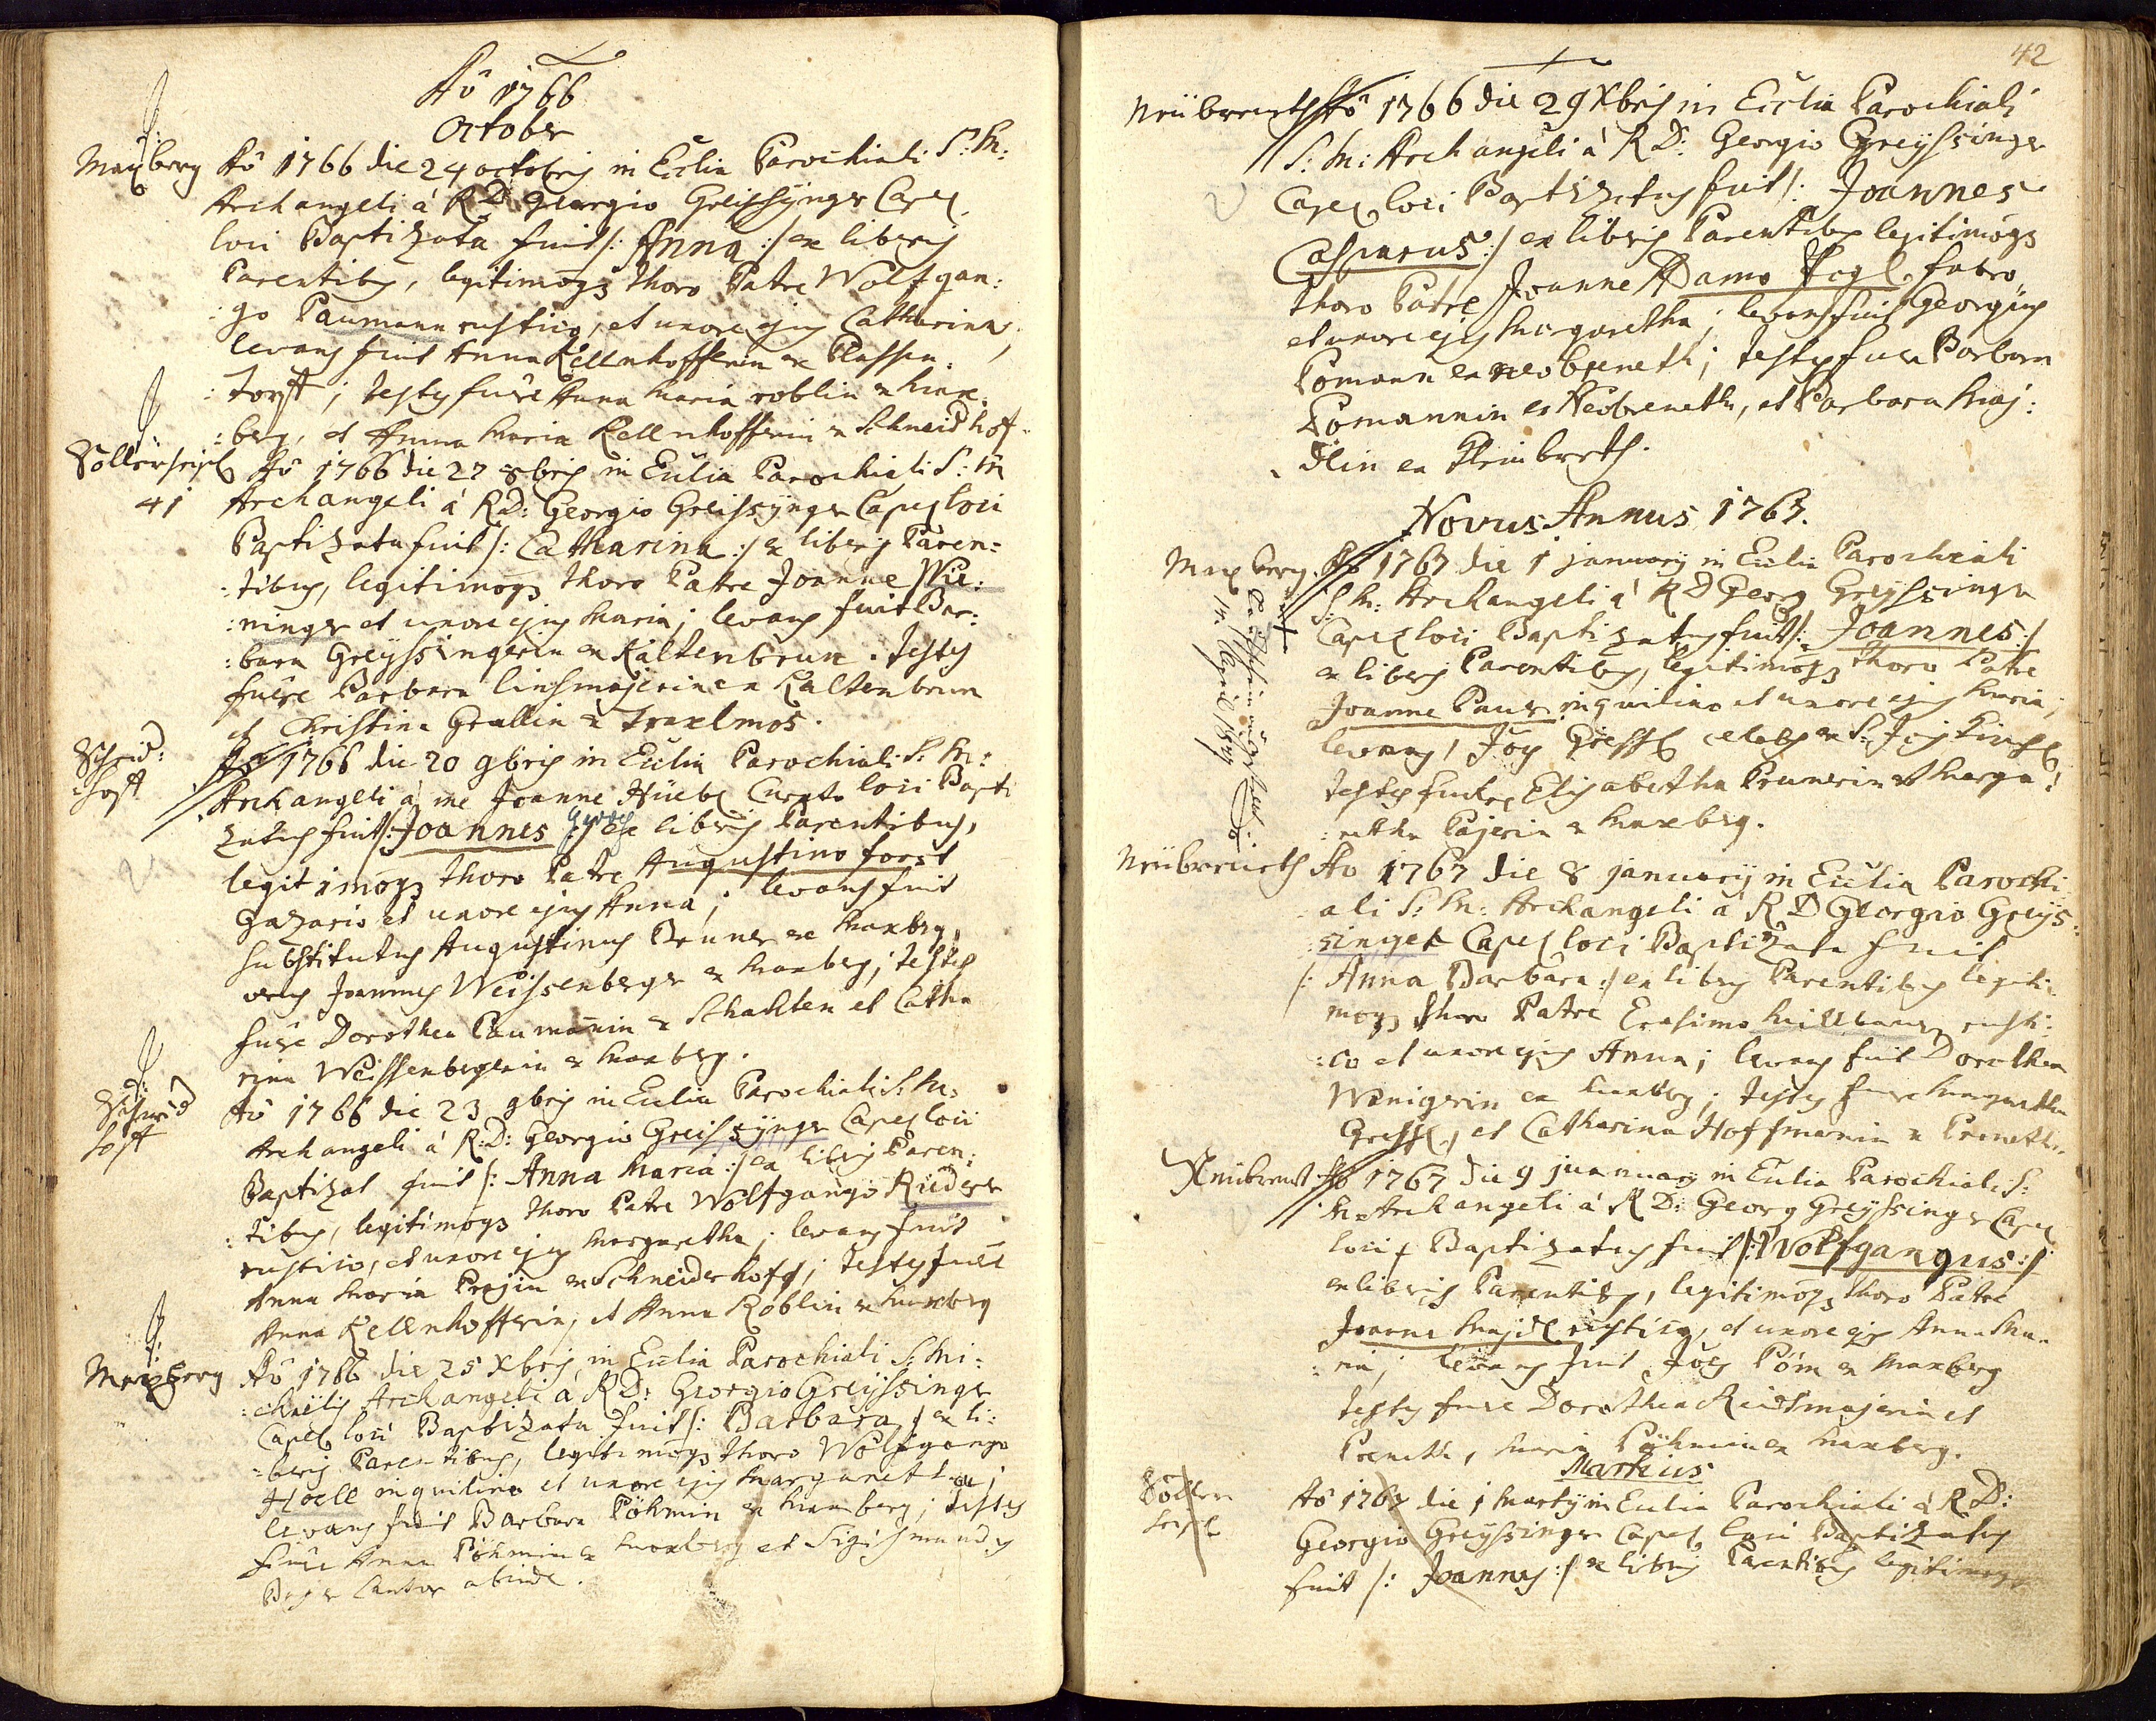 Aô 1766
October
Maxberg Aô 1766 die 24 octobris in Ecclia Parochiali S: M:
Archangeli á R.D. Georgio Greissÿnger Capel.
loci Baptizata fuit /: Anna :/ ex liberis
Parentibus, legitimoqz thoro Patre Wolfgan:
:go Paumann rustico, et uxore ejus Catharina,
levans fuit Anna Kellnhofferin ex Plassen:
:torff; testes fuere Anna Maria roblin ex Max:
:berg, et Anna Maria Kellnhofferin ex Schneidhof
Aô 1766 die 27 8bris in Ecclia Parochiali S: M
41 Archangeli á R.D: Georgio Greissÿnger Capel loci
Baptizata fuit /: Catharina :/ ex liberis Paren:
:tibus, legitimoqz thoro Patre Joanne Wie:
:ninger et uxore ejus Maria; levans fuit Bar:
:bara Greÿssingerin ex Kaltenbrun. testes
fuere Barbara linsmajerin ex Kaltenbrun
et Christina Grallin ex Traxlmos.
Schneid:
:hoff
Aô 1766 die 20 9bris in Ecclia Parochiali S: M:
Archangeli á me Joanne Hüebl Curato loci Bapti
zatus fuit /: Joannes Georg :/ ex liberis Parentibus,
legitimoqz thoro Patre Augustino forst
Gazario et uxore ejus Anna; levans fuit
substitutus Augustinus Bruner ex Maxberg,
verus Joannes Weissenberger ex Maxberg; testes
fuere Dorothea Paumanin ex Schachten et Catha
rina Weissenbergerin ex Maxberg.
Schneid
hoff
Aô 1766 die 23 9bris in Ecclia Parochiali S: M:
Archangeli á R:D: Georgio Greissÿnger Capel loci
Baptizat fuit /: Anna Maria :/ ex liberis Paren:
:tibus, legitimoqz thoro Patre Wolfgango Rieder
rustico, et uxore ejus Margaretha; levans fuit
Anna Maria ex Schneiderhoff; testes fuere
Anna Kellnhofferin, et Anna Röblin ex Maxberg
Maxberg Aô 1766 die 25 Xbris in Ecclia Parochiali S: Mi:
:chaëlis Archangeli á R.D: Georgio Greÿssinger
Capel loci Baptizata fuit /: Barbara :/ ex li:
:beris Parentibus, legitimoqz thoro Wolfgango
Hoell inquilino et uxore ejus Margaretha;
levans fuit Barbara Pöhmin ex Maxberg; testes
fuere Anna Pöhmin ex Maxberg et Sigismundus
Cantor abinde.
42
Neübreneth Aô 1766 die 29 Xbris in Ecclia Parochiali
S: M: Archangeli á R.D: Georgio Greÿssinger
Capel loci Baptizatus fuit /: Joannes
Casparus :/ ex liberis Parentibus legitimoqz
thoro Patre Joanne Adamo Vogl, fabro
et uxore ejus Margaretha; levans fuit Georgius
Pomann ex neobreneth; testes fuere Barbara
Pomannin ex Neobreneth, et Barbara Maj:
dlin ex
Novus Annus 1767.
Maxberg. Aô 1767 die 1 januarÿ in Ecclia Parochiali
S: M: Archangeli á R.D Georg Greÿssinger
Capel loci Baptizatus fuit /: Joannes :/
ex liberis Parentibus, legitimoqz thoro Patre
Joanne Paur inquilino et uxore ejus Maria;
levans,
testes fuere Elisabetha Prunerin et Marga:
:retha Pajerin ex Maxberg.
Neübreneth Aô 1767 die 8 januarÿ in Ecclia Parochi
ali S: M: Archangeli á R.D Georgio Greÿs:
:singer Capel loci Baptizata fuit
/: Anna Barbara :/ ex liberis Parentibus legiti:
moqz thoro Patre Erasimo rusti:
:co et uxore ejus Anna; levans fuit Dorothea
Wenigerin ex Maxberg; testes fuere Margaretha
et Catharina Hoffmanin ex Preneth.
Neübrent Aô 1767 die 9 januarÿ in Ecclia Parochiali S:
M: Archangeli á R.D: Georg Greÿssinger Capel
loci Baptizatus fuit /: Wolfgangus :/
ex liberis Parentibus, legitimoqz thoro Patre
Joanne Majdl rustico, et uxore ejus Anna Ma:
:ria; levans fuit Pöm ex Maxberg
testes fuere Dorothea et
Preneth, Maria Pöhmin ex Maxberg.
Martius
Aô 1767 die 1 Martÿ in Ecclia Parochiali á R.D:
Georgio Greÿssinger Capel loci Baptizatus
fuit /: Joannes :/ ex liberis Parentibus legitimoqz